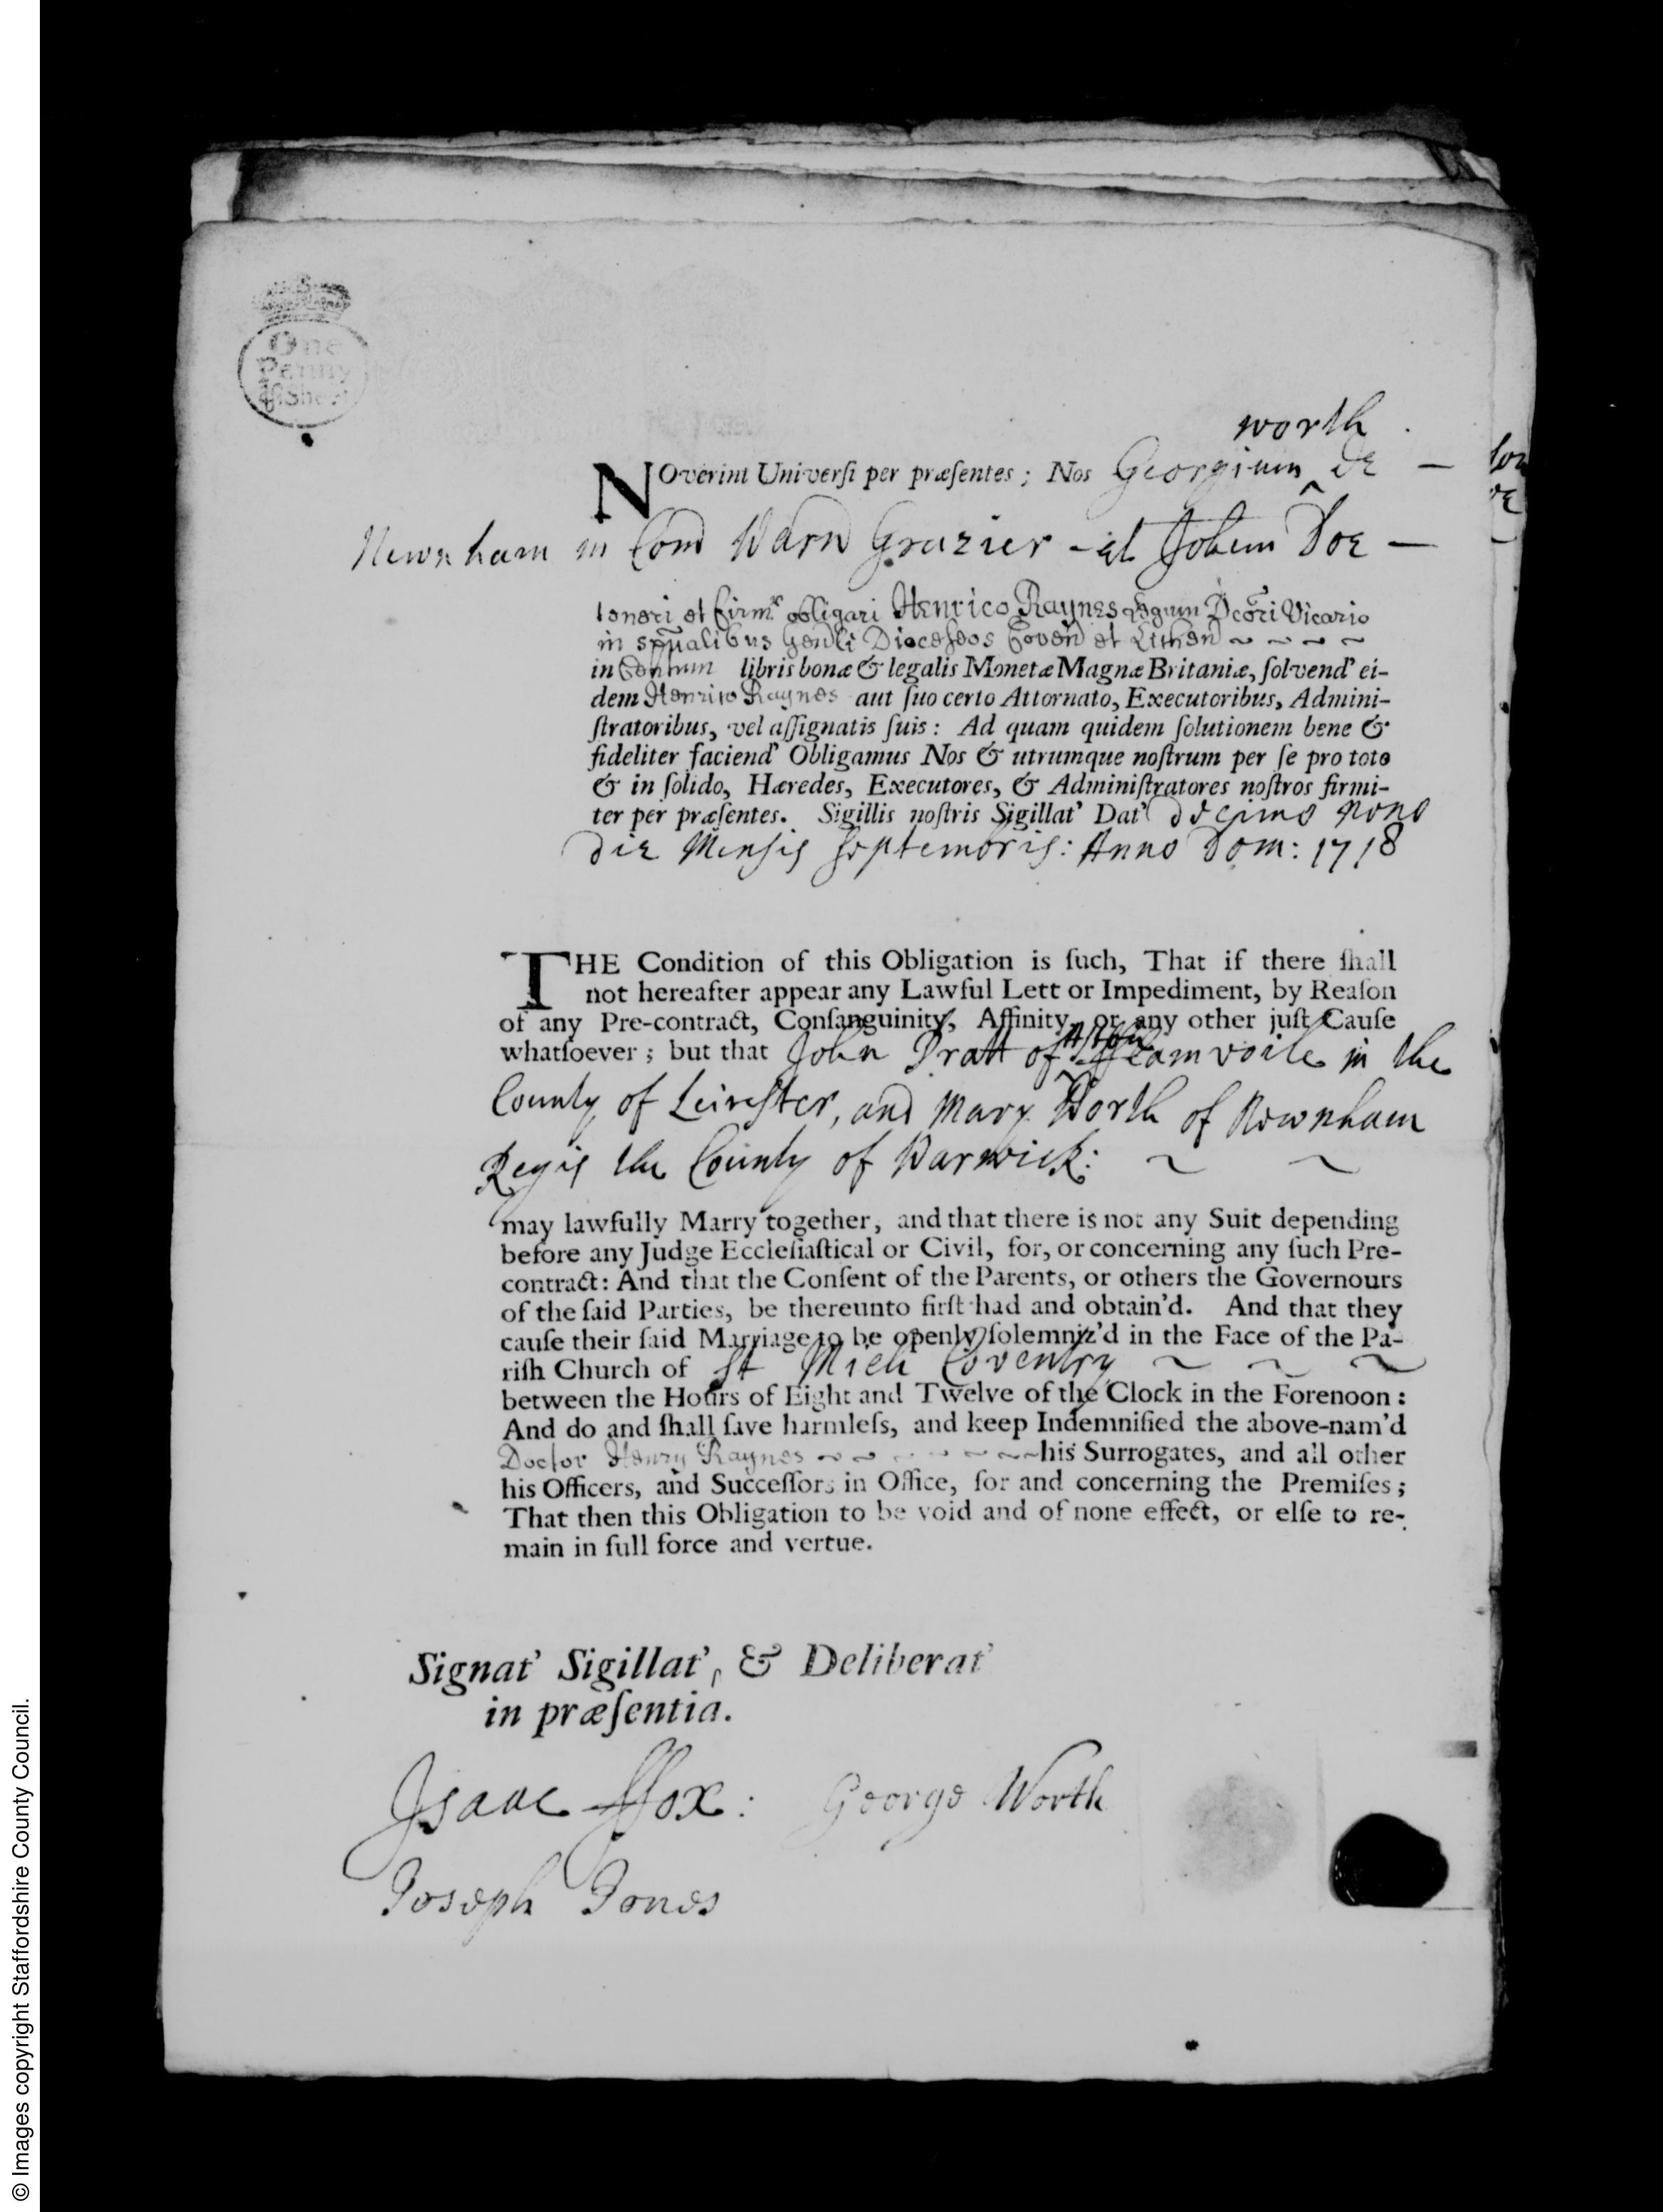 One
Penny
Sheet
worth
NOverint Universi per præsentes; Nos Georgium ‸ de —
Newnham in Com Warw Grazier - et Johem Doe —
teneri et firmr obligari Henrico Raynes Legum Dcori Vicario
in spualibus Genli Dioceseos Coven et Lichen ~ ~ ~ ~
in Centum libris bonæ & legalis Monetæ Magnæ Britaniæ, ſolvend' ei-
dem Henrico Raynes aut ſuo certo Attornato, Executoribus, Admini-
ſtratoribus, vel aſſignatis ſuis: Ad quam quidem ſolutionem bene &
fideliter faciend' Obligamus Nos & utrumque noſtrum per ſe pro toto
& in ſolido, Hæredes, Executores, & Adminiſtratores noſtros firmi-
ter per præſentes. Sigillis noſtris Sigillat' Dat' decimo nono
die Mensis Septembris: Anno Dom: 1718
THE Condition of this Obligation is ſuch, That if there ſhall
not hereafter appear any Lawful Lett or Impediment, by Reaſon
of any Pre-contract, Conſanguinity, Affinity, or any other juſt Cauſe
Aston
whatſoever; but that John Pratt of ‸ Flamvoile in the
County of Leicester, and Mary Worth of Newnham
Regis the County of Warwick: ~ ~
may lawfully Marry together, and that there is not any Suit depending
before any Judge Eccleſiaſtical or Civil, for, or concerning any ſuch Pre-
contract: And that the Conſent of the Parents, or others the Governours
of the ſaid Parties, be thereunto firſt had and obtain'd. And that they
cauſe their ſaid Marriage to be openly ſolemniz'd in the Face of the Pa-
riſh Church of St Mich Coventry ~ ~ ~
between the Hours of Eight and Twelve of the Clock in the Forenoon:
And do and ſhall ſave harmleſs, and keep Indemnified the above-nam'd
Doctor Henry Raynes ~ ~ ~ ~ ~ ~ his Surrogates, and all other
his Officers, and Succeſſors in Office, for and concerning the Premiſes;
That then this Obligation to be void and of none effect, or elſe to re-
main in full force and vertue.
Signat' Sigillat', & Deliberat'
in præſentia.
Isaac ffox: George Worth
Joseph Jones
© Images copyright Staffordshire County Council.